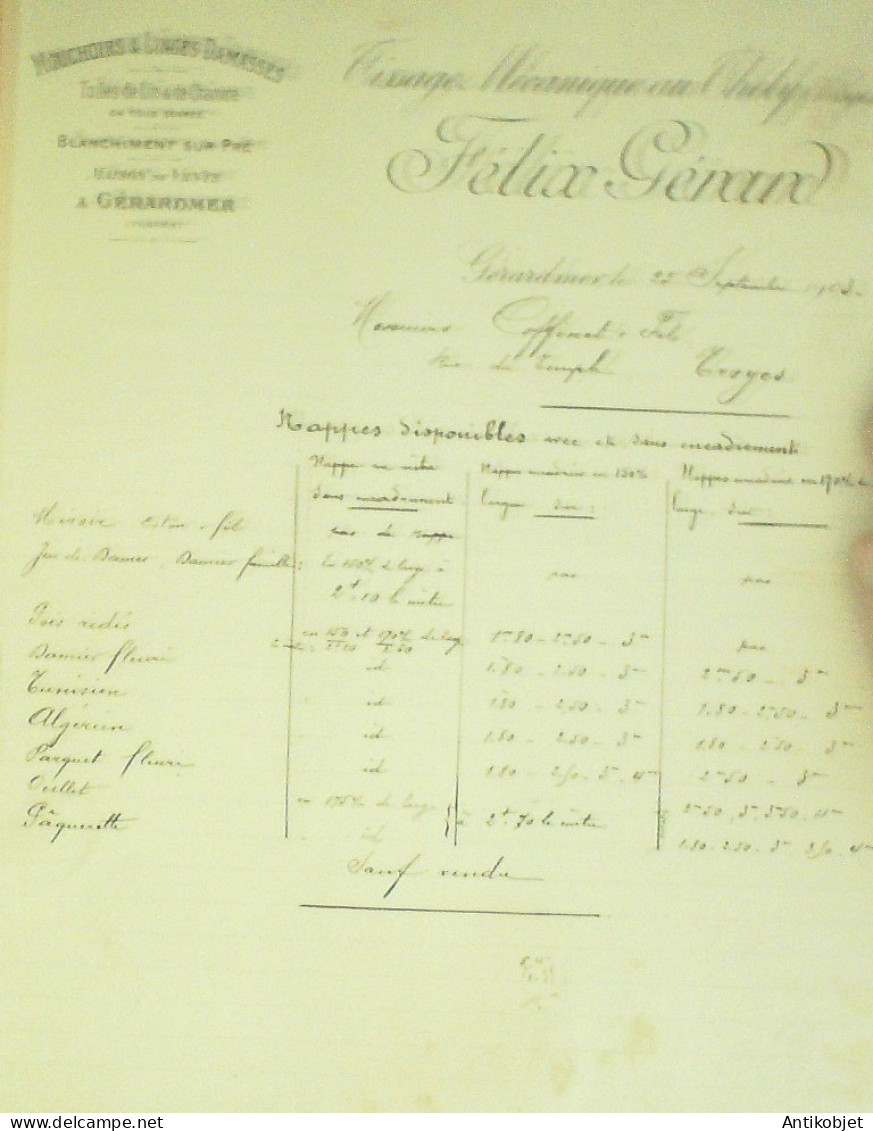 MOUCHOIRS & LINGES DAMASSÉS
Toiles de Lin & de Chanvre
EN TOUS GENRES
BLANCHIMENT SUR PRÉ
À GÉRARDMER
Tissage Mécanique au
Félix Gérard
Gérardmer le 25 Septembre
Messieurs Coffinet & Fils
Rue du Temple Troyes
Nappes disponibles avec et sans encadrement
Nappe au mètre
sans encadrement
Nappes encadrées en 150%
large sur :
Nappes encadrées en 170% de
large sur :
Miroir coton & fil
pas de nappe
Jeu de Damier, Damier feuille : En 150% de large à pas pas
2f 10 le mètre
Pois
en 150 et 170% de large 1m80 - 2m50 - 3m pas
Damier fleuri id 1m80 - 2.50 - 3m 2m50 - 3m
Tunisien id 1.80 - 2.50 - 3m 1.80 - 2m50 - 3m
Algérien id 1.80 - 2.50 - 3m 1.80 - 2.50 - 3m
Parquet fleuri id 1.80 - 2.50 - 3m - 4m 2m50 - 3m
Oeillet en 175% de large à 2f 70 le mètre 2m50, 3m, 3m50, 4m
Pâquerette id 1.80 - 2.50 - 3m 3,50 - 4m
Sauf vendu
Antikobjet